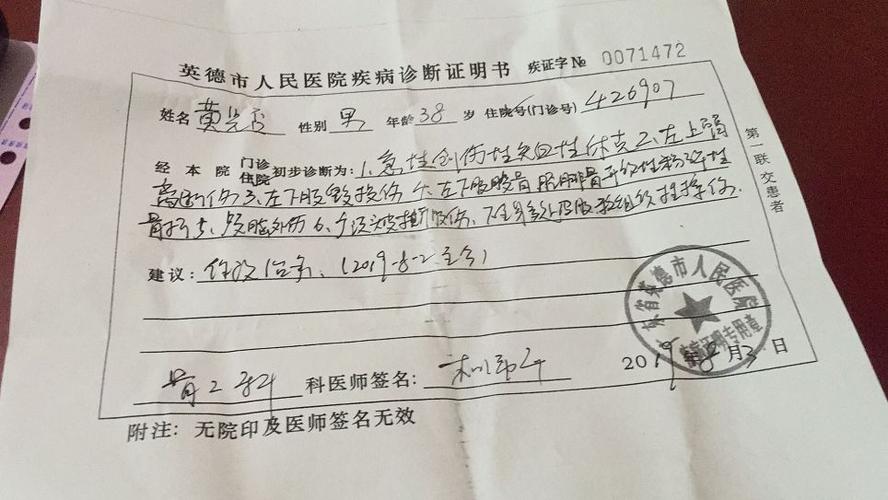 英德市人民医院疾病诊断证明书 疾证字№ 0071472
姓名 黄 性别 男 年龄 38 岁 住院号(门诊号) 426907
经本院门诊住院初步诊断为: 1、急性创伤性失血性休克 2、左上臂
离断伤 3、左下肢毁损伤 4、左下肢股骨 胫腓骨开放性粉碎性
骨折 5、 外伤 6、 头皮 伤、7、全身多处皮肤软组织挫擦伤.
建议: 住院治疗、(2019-8-2至今)
骨2科 科医师签名:
2019年8月3日
附注: 无院印及医师签名无效
第一联交患者
东省英德市人民医院
疾病证明专用章